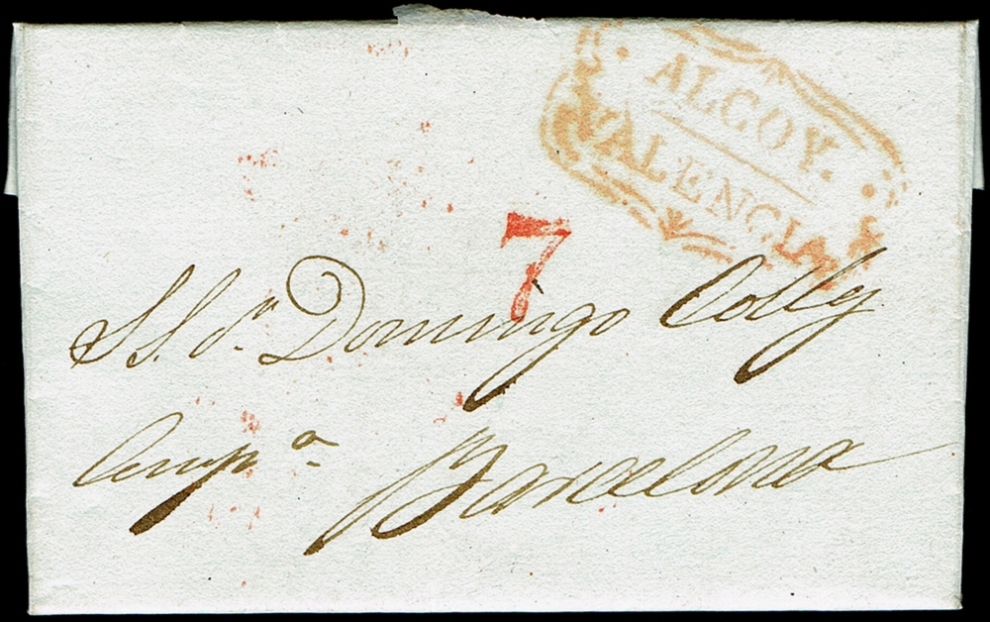 ·ALCOY.
VALENCIA
7
S. S. Dn. Domingo Coll y
Compª. Barcelona